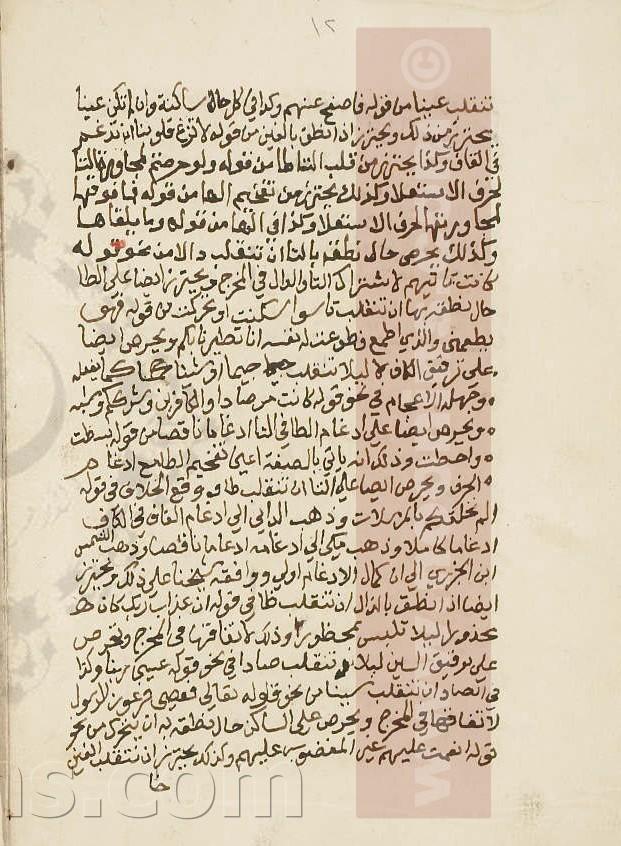 ١٢
تنقلب عينا من قوله فاصفح عنهم وكذا في كل حاء ساكنة وان لم تكن عينا
يحترز من ذلك ويحترز اذا نطق بالغين من قوله لا تزغ قلوبنا ان تدغم
في القاف وكذا يحترز من قلب التا طا من قوله ولو حرصتم لمجاورة التا
لحرف الاستعلا وكذلك يحترز من تفخيم الها من قوله فما فوقها
لمجاورتها لحرف الاستعلا وكذا في الها من قوله وما يلقاها
وكذلك يحرص حال نطقه بالتا ان تنقلب دالا من نحو قوله
كانت تاتيهم لاشتراك التا والدال في المخرج ويحترز ايضا على الطا
حال نطقه بها ان تنقلب تا سوا سكنت او تحركت من قوله فهو
يطعمني والذي اطمع فطوعت له نفسه انا تطيرنا بكم ويحرص ايضا
على ترقيق الكاف لا ليلا تنقلب جيما او شينا كما يفعله
وجهلة الاعجام في نحو قوله كانت مرصادا والكافرين وشرككم
ويحرص ايضا على ادغام الطا في التا ادغاما ناقصا من قوله بسطت
واحطت وذلك انه ياتي بالصفة اعني تفخيم الطا مع ادغام
الحرف ويحرص ايضا على التا ان تنقلب طا ووقع الخلاف في قوله
الم نخلقكم بالمرسلات وذهب الداني الى ادغام القاف في الكاف
ادغاما كاملا وذهب مكي الى ادغامه ادغاما ناقصا وذهب الشمس
ابن الجزري الى ان كمال الادغام اولى ووافقه شيخنا على ذلك ويحترز
ايضا اذا نطق بالذال ان تنقلب ظا في قوله ان عذاب ربك كان
محذورا ليلا تلتبس بمحظورا وذلك لاتفاقهما في المخرج ويحرص
على ترقيق السين ليلا تنقلب صادا في نحو قوله عسى ربنا وكذا
في الصاد ان تنقلب سينا من نحو قوله تعالى فعصى فرعون الرسول
لاتفاقهما في المخرج ويحرص على الساكن حال نطقه به ان يتحرك من نحو
قوله انعمت عليهم غير المغضوب عليهم وكذلك يحترز ان تنقلب الغين
خا
ns.com
©